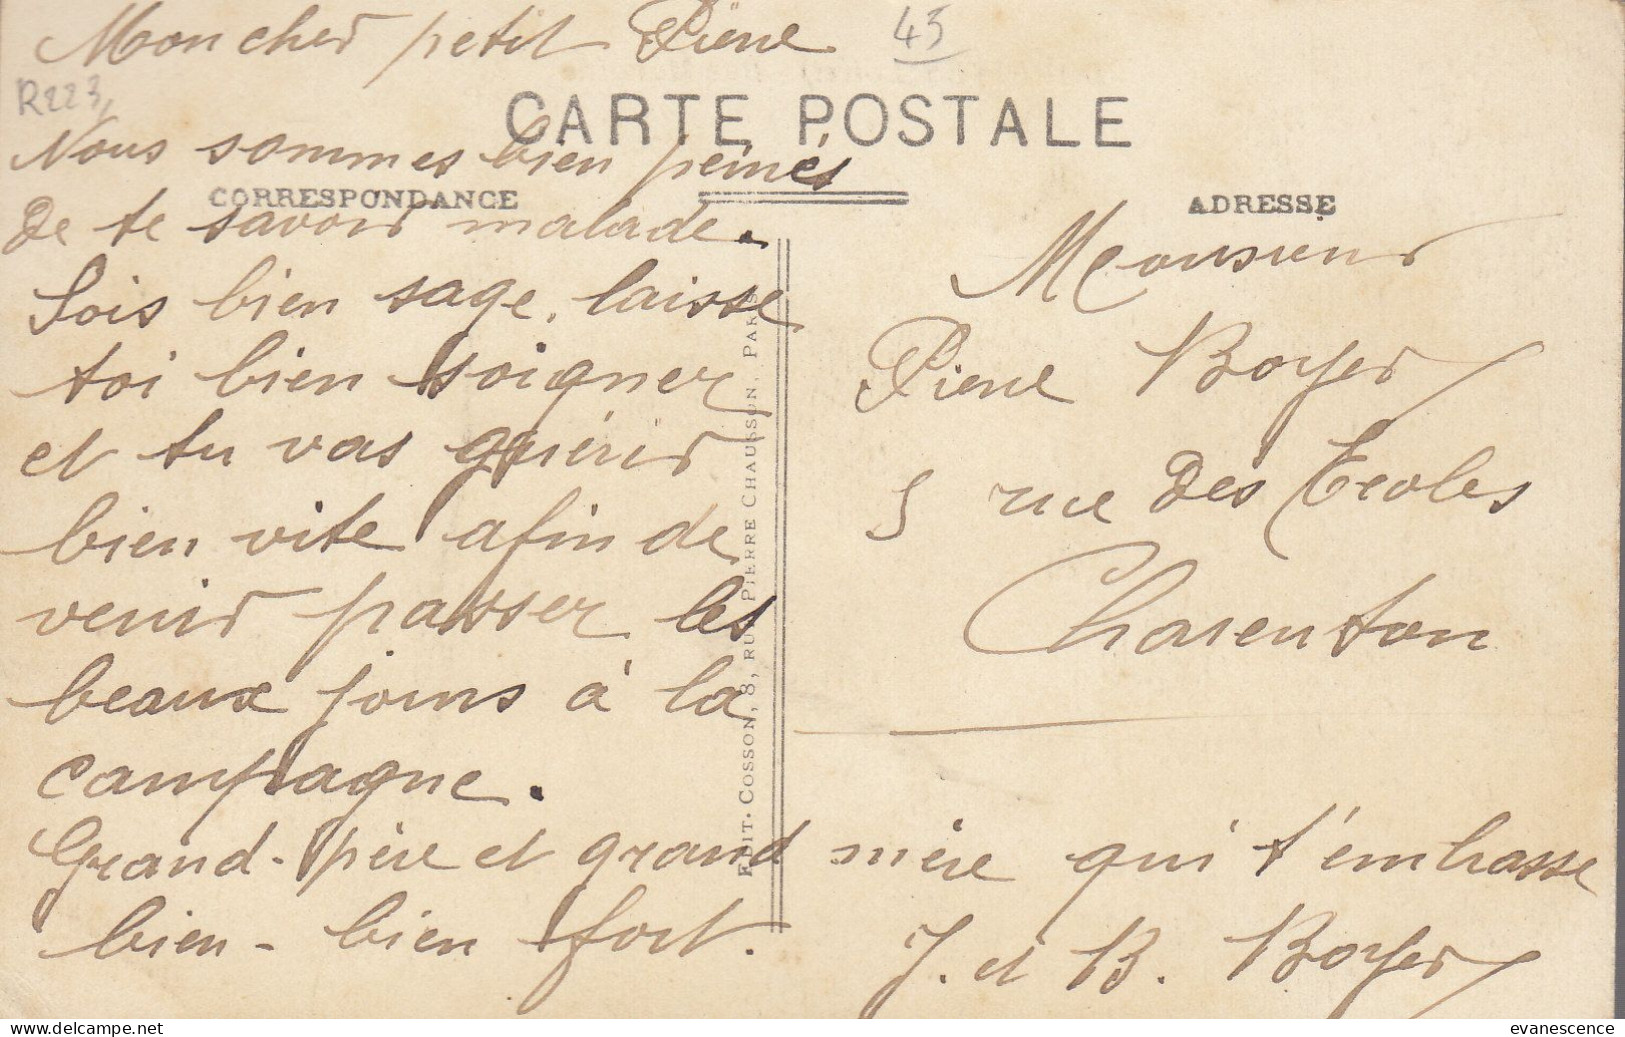 Mon cher petit Pierre
45
R223,
CARTE POSTALE
Nous sommes bien peinés
CORRESPONDANCE
ADRESSE
De te savoir malade.
Sois bien sage, laisse
toi bien soigner
et tu vas guérir
bien vite afin de
venir passer les
beaux jours à la
campagne.
Grand-père et grand mère qui t'embrasse
bien - bien fort.
J. et B. Boyer
Monsieur
Pierre Boyer
5 rue Des Ecoles
Charenton
EDIT. COSSON, 8, RUE PIERRE CHAUSSON, PARIS
evanescence